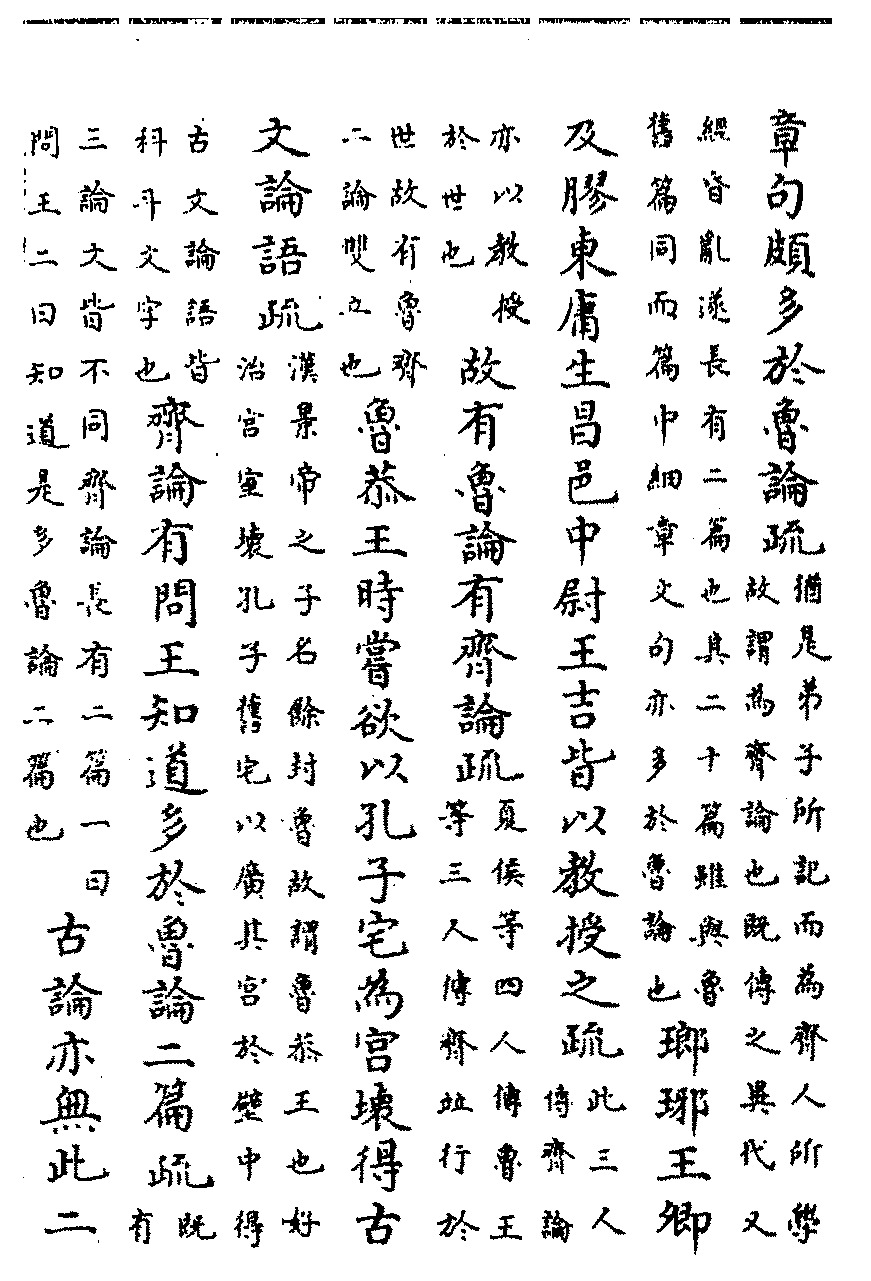 章句頗多於魯論疏猶是弟子所記而為齊人所學故謂為齊論也既傳之異代又
經昏亂遂長有二篇也其二十篇雖與魯舊篇同而篇中細章文句亦多於魯論也瑯琊王卿
及膠東庸生昌邑中尉王吉皆以教授之疏此三人傳齊論
亦以教授於世也故有魯論有齊論疏夏侯等四人傳魯王等三人傳齊竝行於
世故有魯齊二論雙立也魯恭王時嘗欲以孔子宅為宮壞得古
文論語疏漢景帝之子名餘封魯故謂魯恭王也好治宮室壞孔子舊宅以廣其宮於壁中得
古文論語皆科斗文字也齊論有問王知道多於魯論二篇疏既有
三論文皆不同齊論長有二篇一曰問王二曰知道是多魯論二篇也古論亦無此二